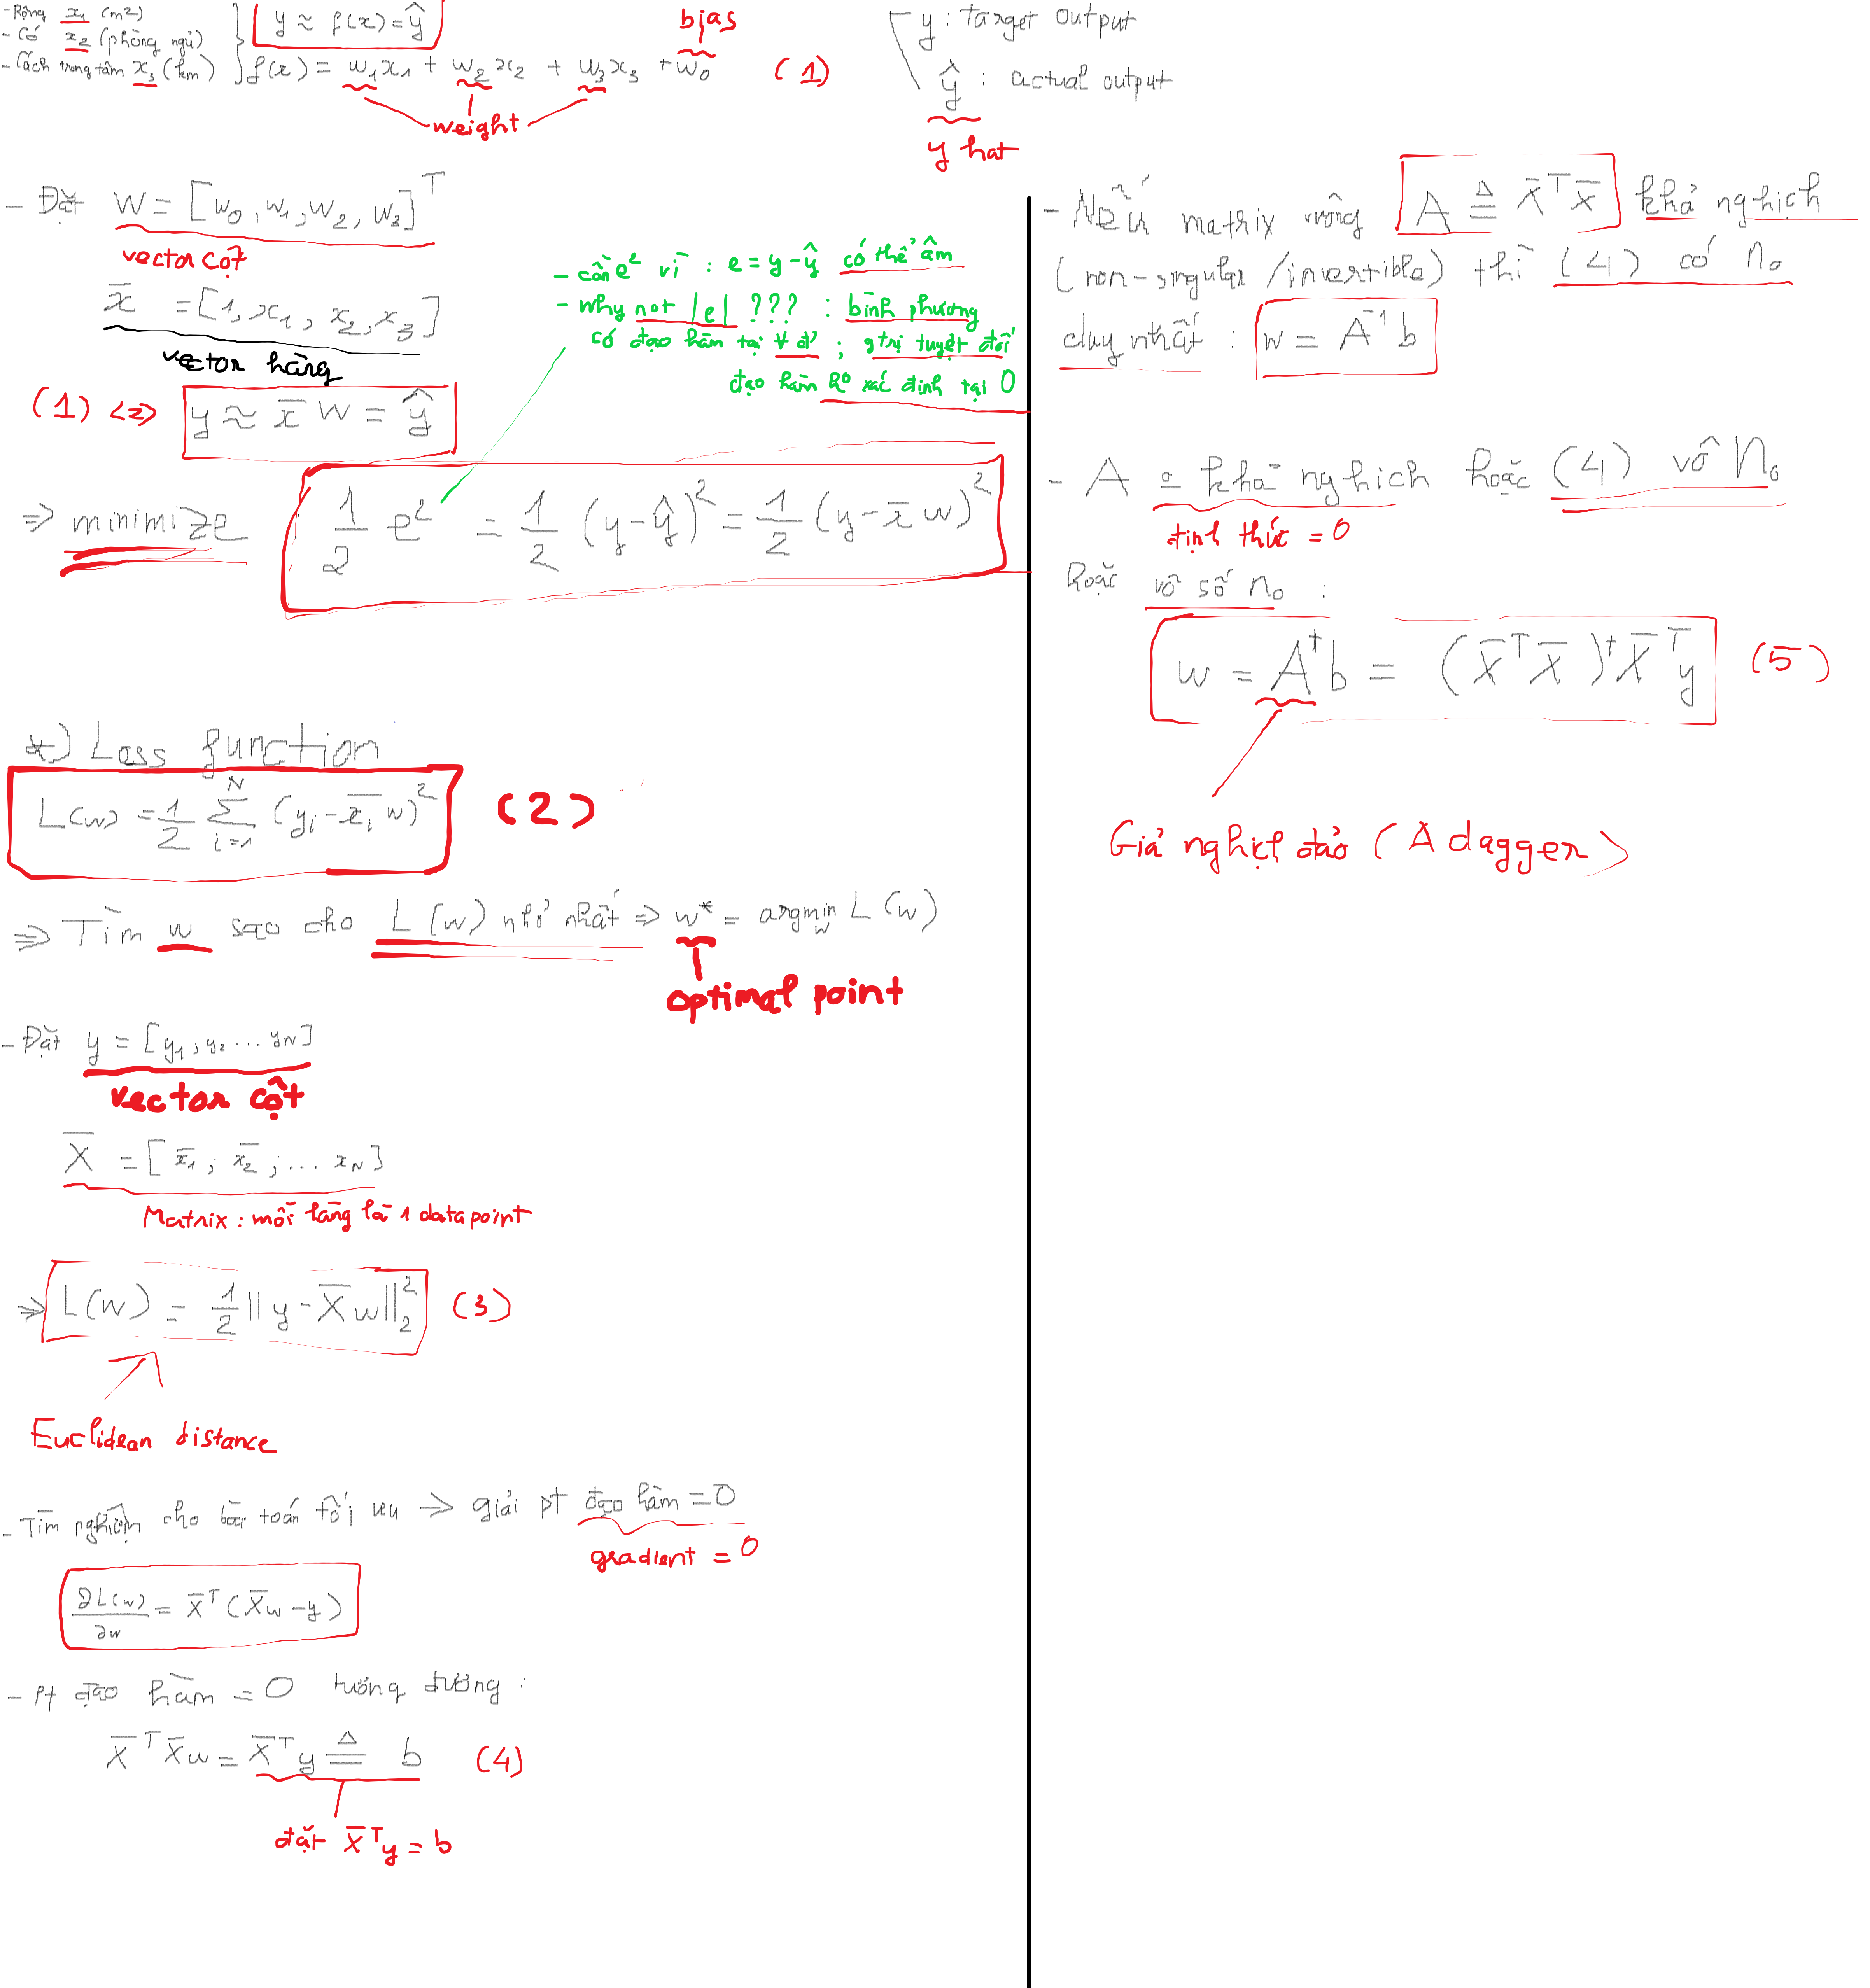 - Rộng x₁ (m2)
- Có x₂ (phòng ngủ)
- Cách trung tâm x₃ (km)
y ≈ f(x) = ŷ
f(x) = w₁x₁ + w₂x₂ + w₃x₃ + w₀ (1)
bias
weight
y : target output
ŷ : actual output
y hat
- Đặt w = [w₀, w₁, w₂, w₃]ᵀ
vector cột
x̄ = [1, x₁, x₂, x₃]
vector hàng
(1) <=> y ≈ x̄ w = ŷ
- cần e² vì : e = y - ŷ có thể âm
- why not |e| ??? : bình phương
có đạo hàm tại ∀ đ' ; gtrị tuyệt đối
đạo hàm k⁰ xác định tại 0
=> minimize 1/2 e² = 1/2 (y - ŷ)² = 1/2 (y - x̄ w)²
*) Loss function
L(w) = 1/2 ∑ᵢ₌₁ᴺ (yᵢ - x̄ᵢ w)² (2)
=> Tìm w sao cho L(w) nhỏ nhất => w* = argmin_w L(w)
optimal point
- Đặt y = [y₁; y₂ ... yN]
vector cột
X̄ = [x̄₁; x̄₂; ... xN]
Matrix : mỗi hàng là 1 datapoint
=> L(w) = 1/2 ||y - X̄w||₂² (3)
Euclidean distance
- Tìm nghiệm cho bài toán tối ưu => giải pt đạo hàm = 0
gradient = 0
∂L(w)/∂w = X̄ᵀ(X̄w - y)
- Pt đạo hàm = 0 tương đương :
X̄ᵀX̄w = X̄ᵀy ≜ b (4)
đặt X̄ᵀy = b
- Nếu matrix vuông A ≜ X̄ᵀX̄ khả nghịch
(non-singular /invertible) thì (4) có n₀
duy nhất : w = A⁻¹b
- A = khả nghịch hoặc (4) vô n₀
định thức = 0
hoặc vô số n₀ :
w = A†b = (X̄ᵀX̄)†X̄ᵀy (5)
Giả nghịch đảo (A dagger)